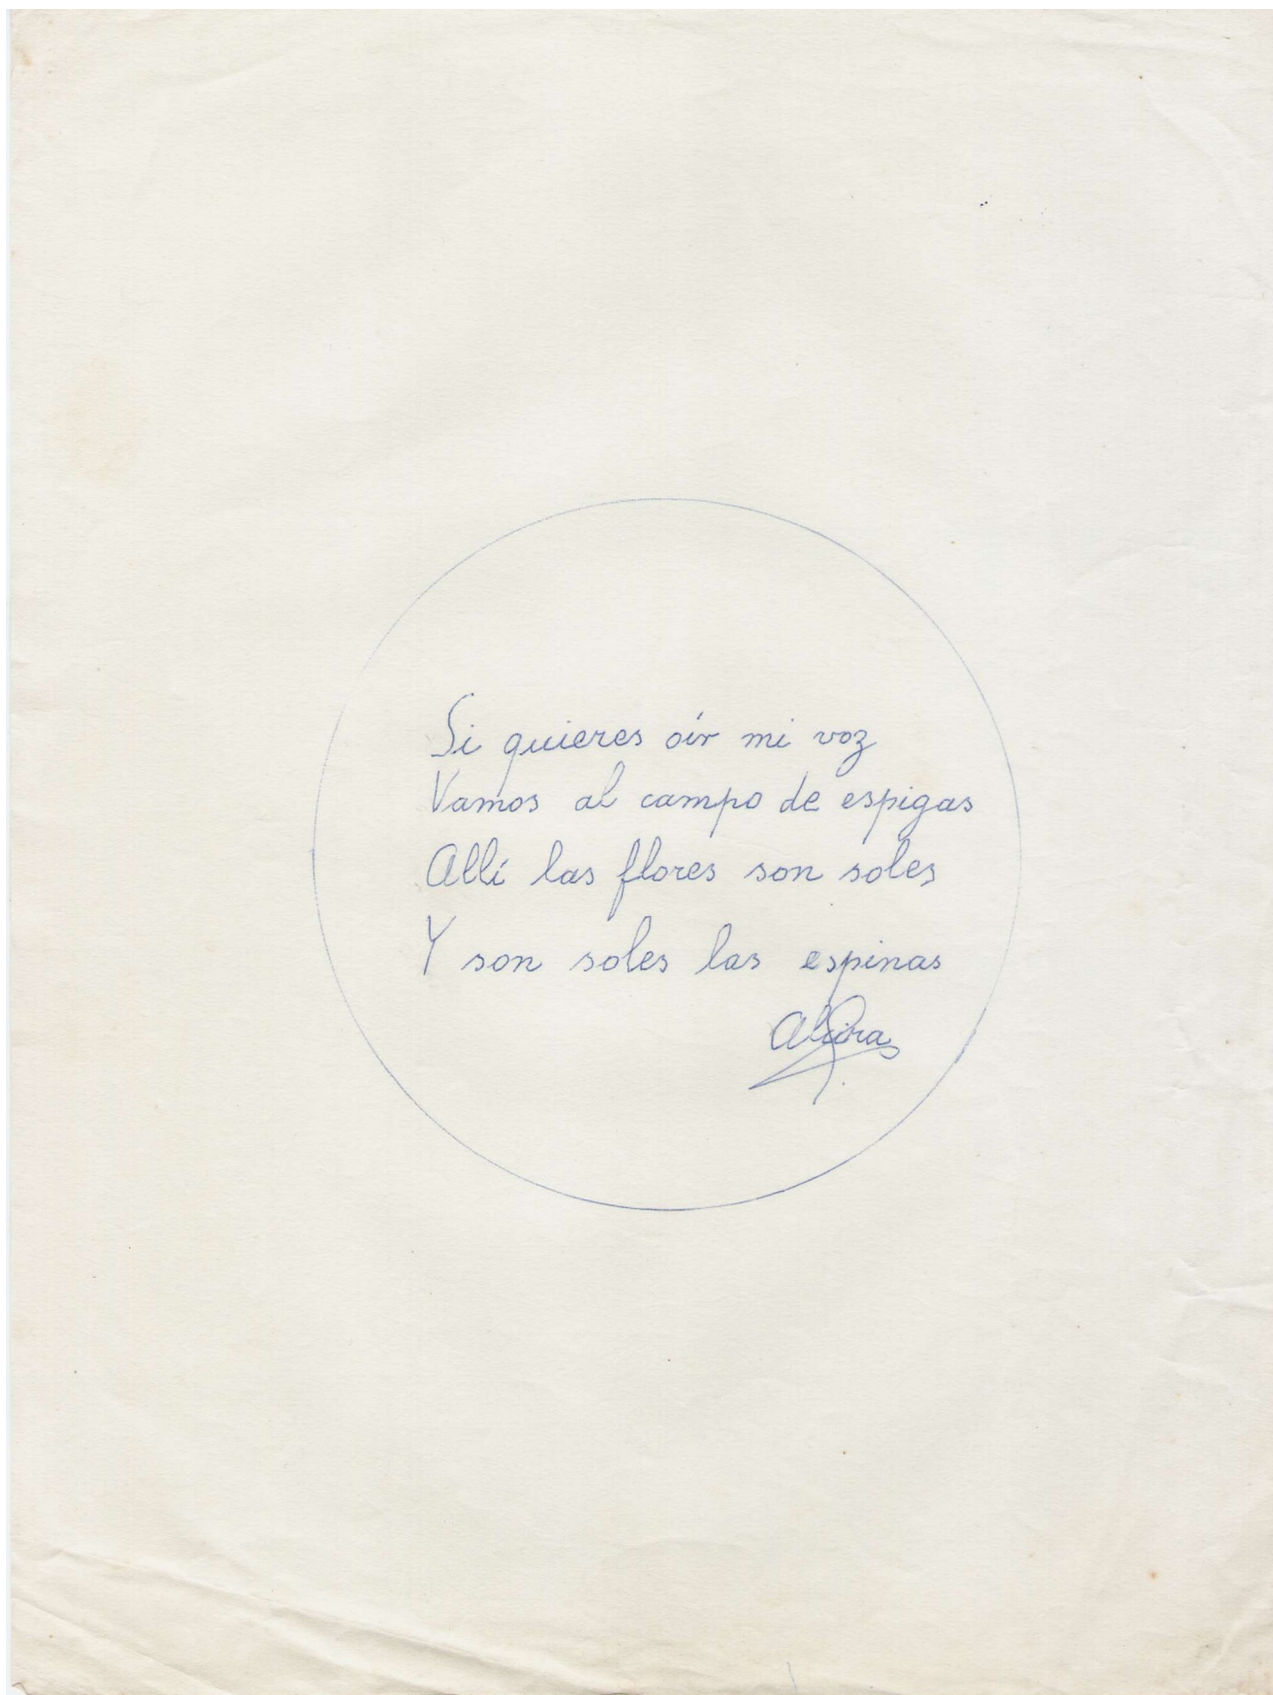 Si quieres oír mi voz
Vamos al campo de espigas
Allí las flores son soles
Y son soles las espinas
Alcira